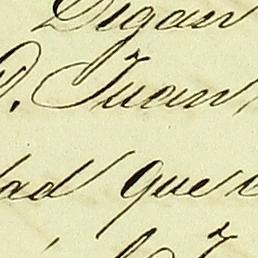 Digan
D. Juan
dad que